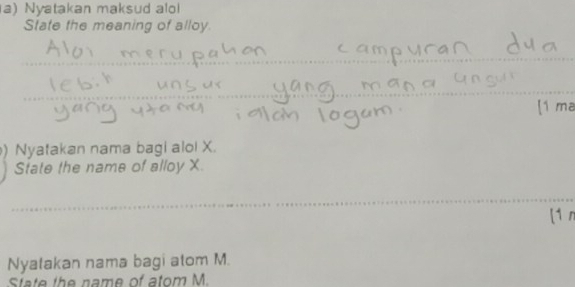 a) Nyatakan maksud aloi
State the meaning of alloy.
Aloi merupakan campuran dua
lebih unsur yang mana unsur
yang utama ialah logam.
[1 ma
) Nyatakan nama bagi aloi X.
State the name of alloy X.
[1 m
Nyatakan nama bagi atom M.
State the name of atom M.